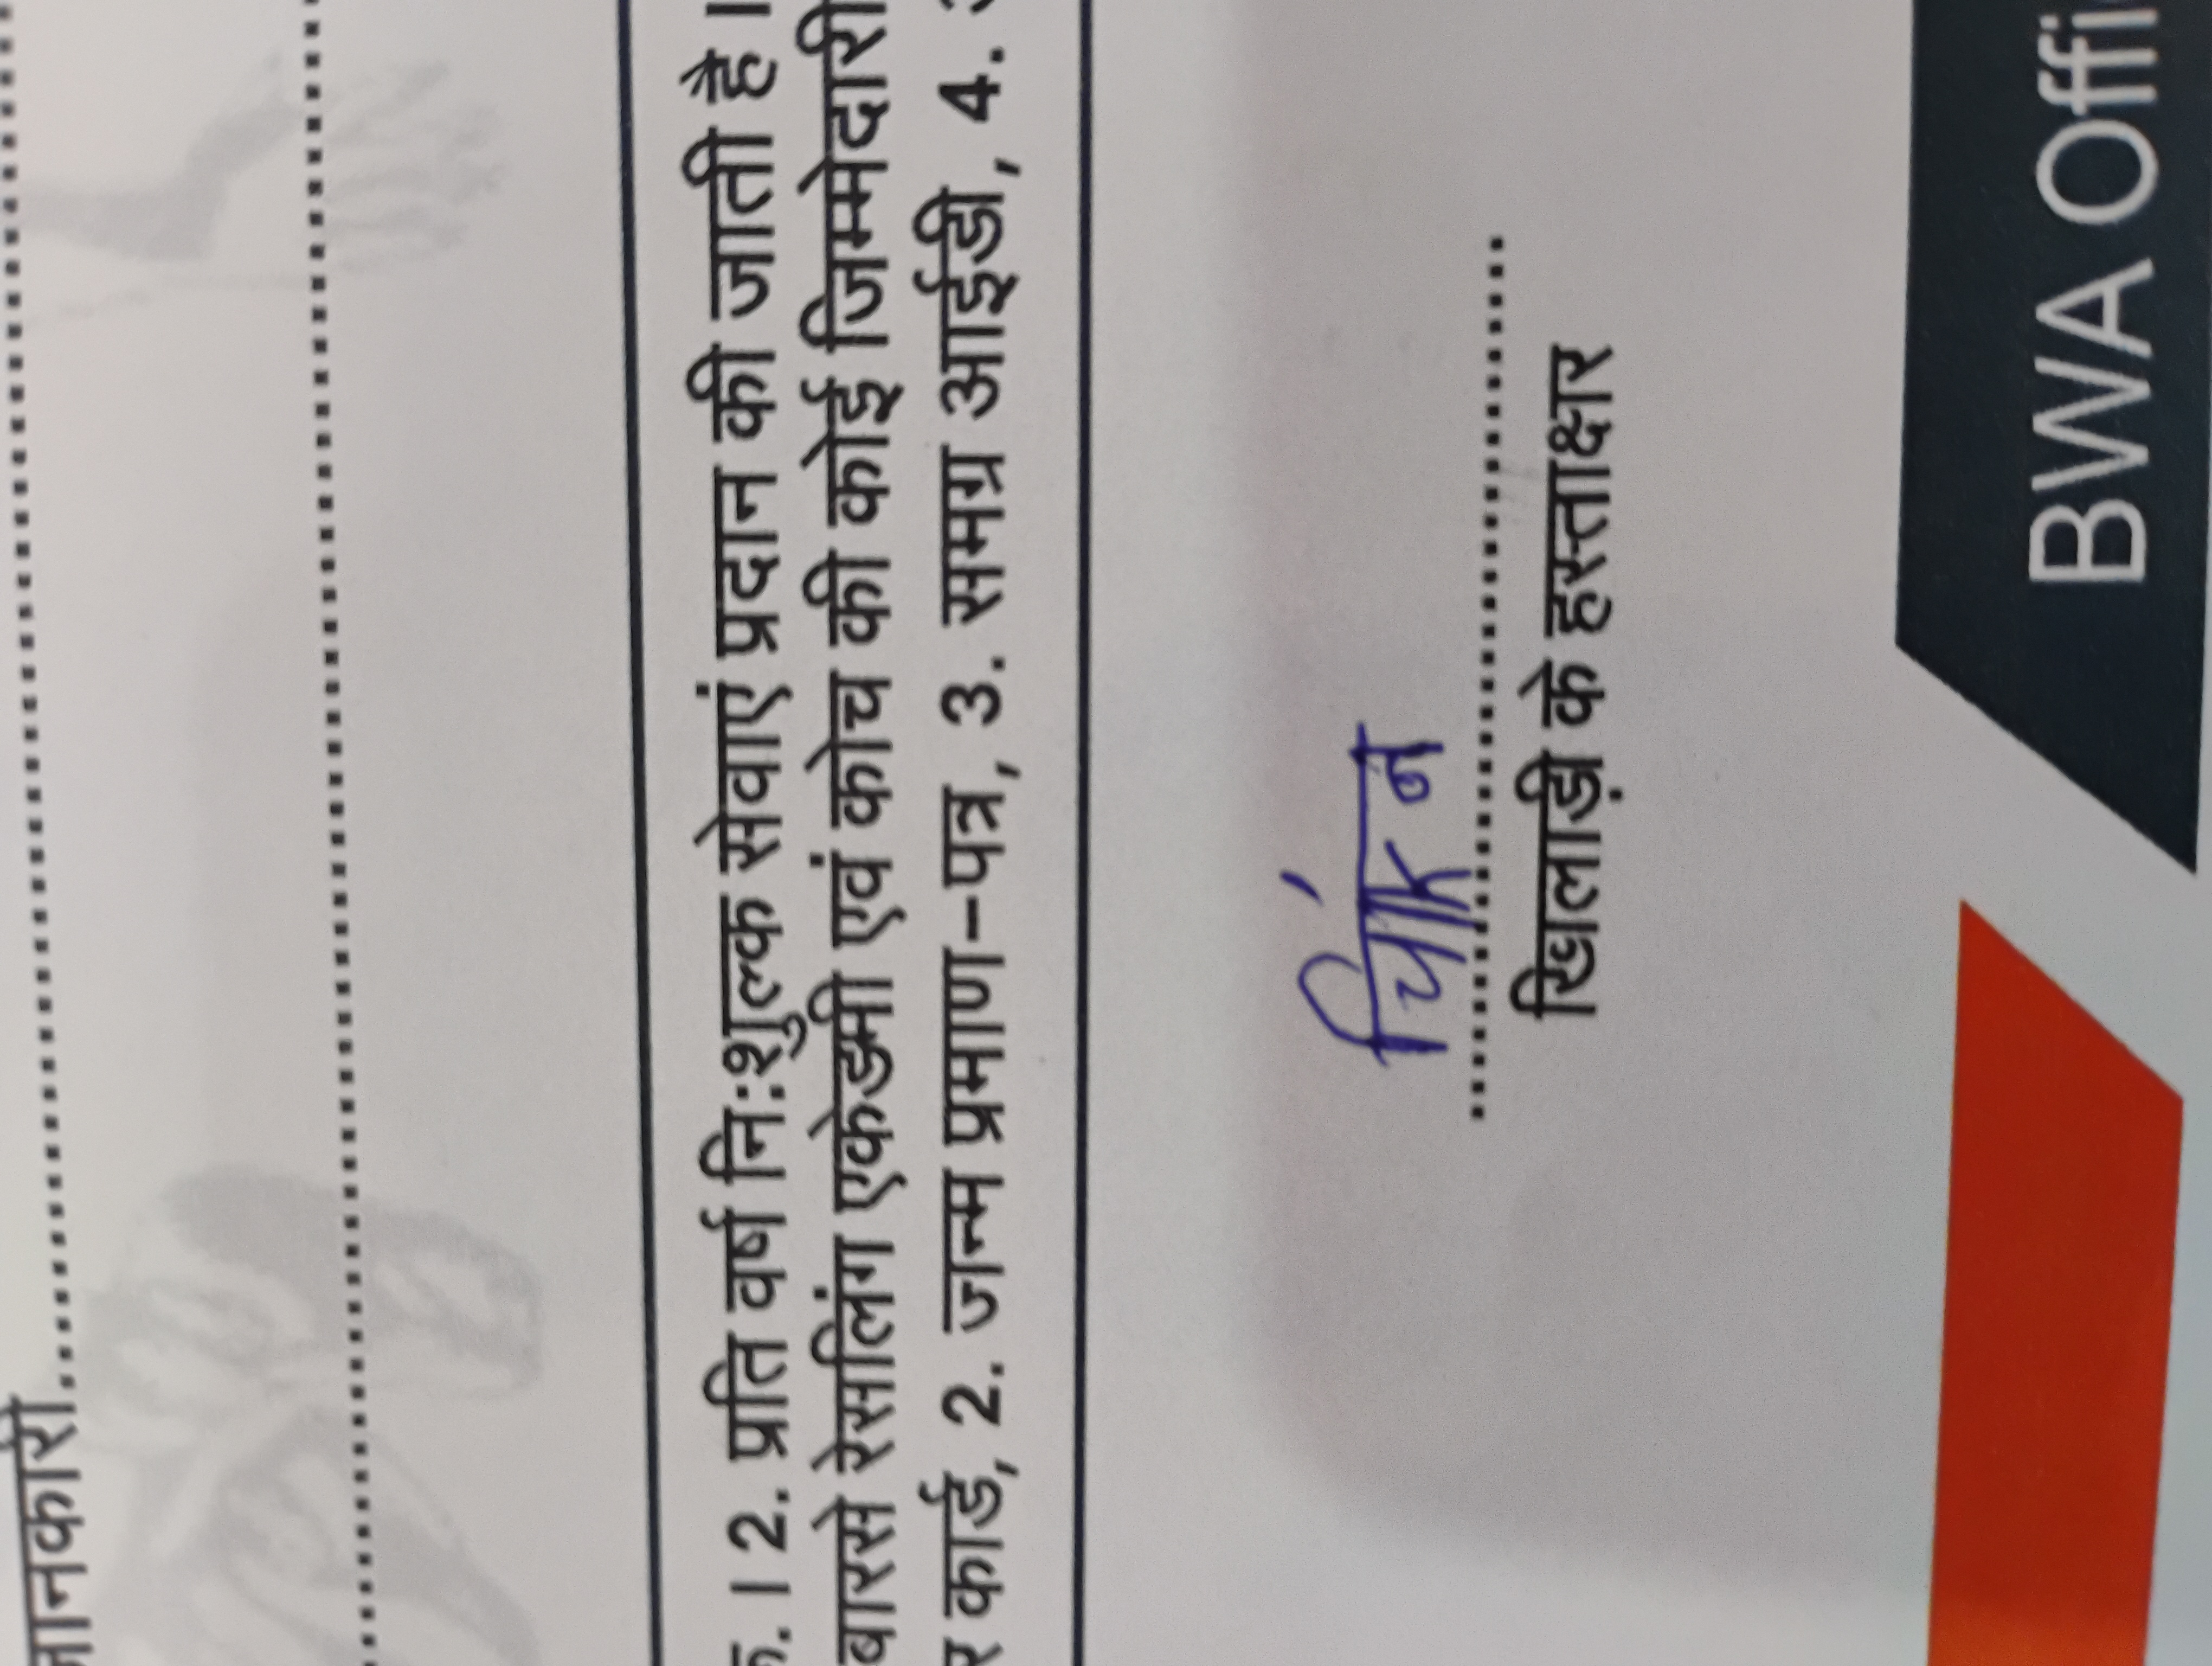 जानकारी
रु. । 2. प्रति वर्ष निःशुल्क सेवाएं प्रदान की जाती है।
बारसे रेसलिंग एकेडमी एवं कोच की कोई जिम्मेदारी
कार्ड, 2. जन्म प्रमाण-पत्र, 3. समग्र आईडी, 4.
खिलाड़ी के हस्ताक्षर
BWA Offi